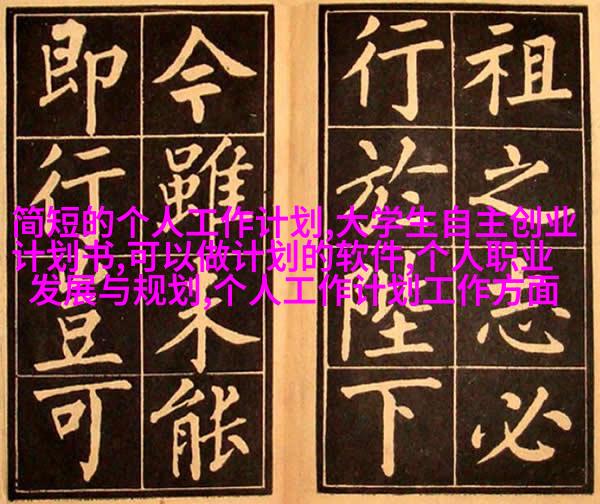 祖之志必
行於陛下
今雖未能
即行豈可
简短的个人工作计划,大学生自主创业
计划书,可以做计划的软件,个人职业
发展与规划,个人工作计划工作方面